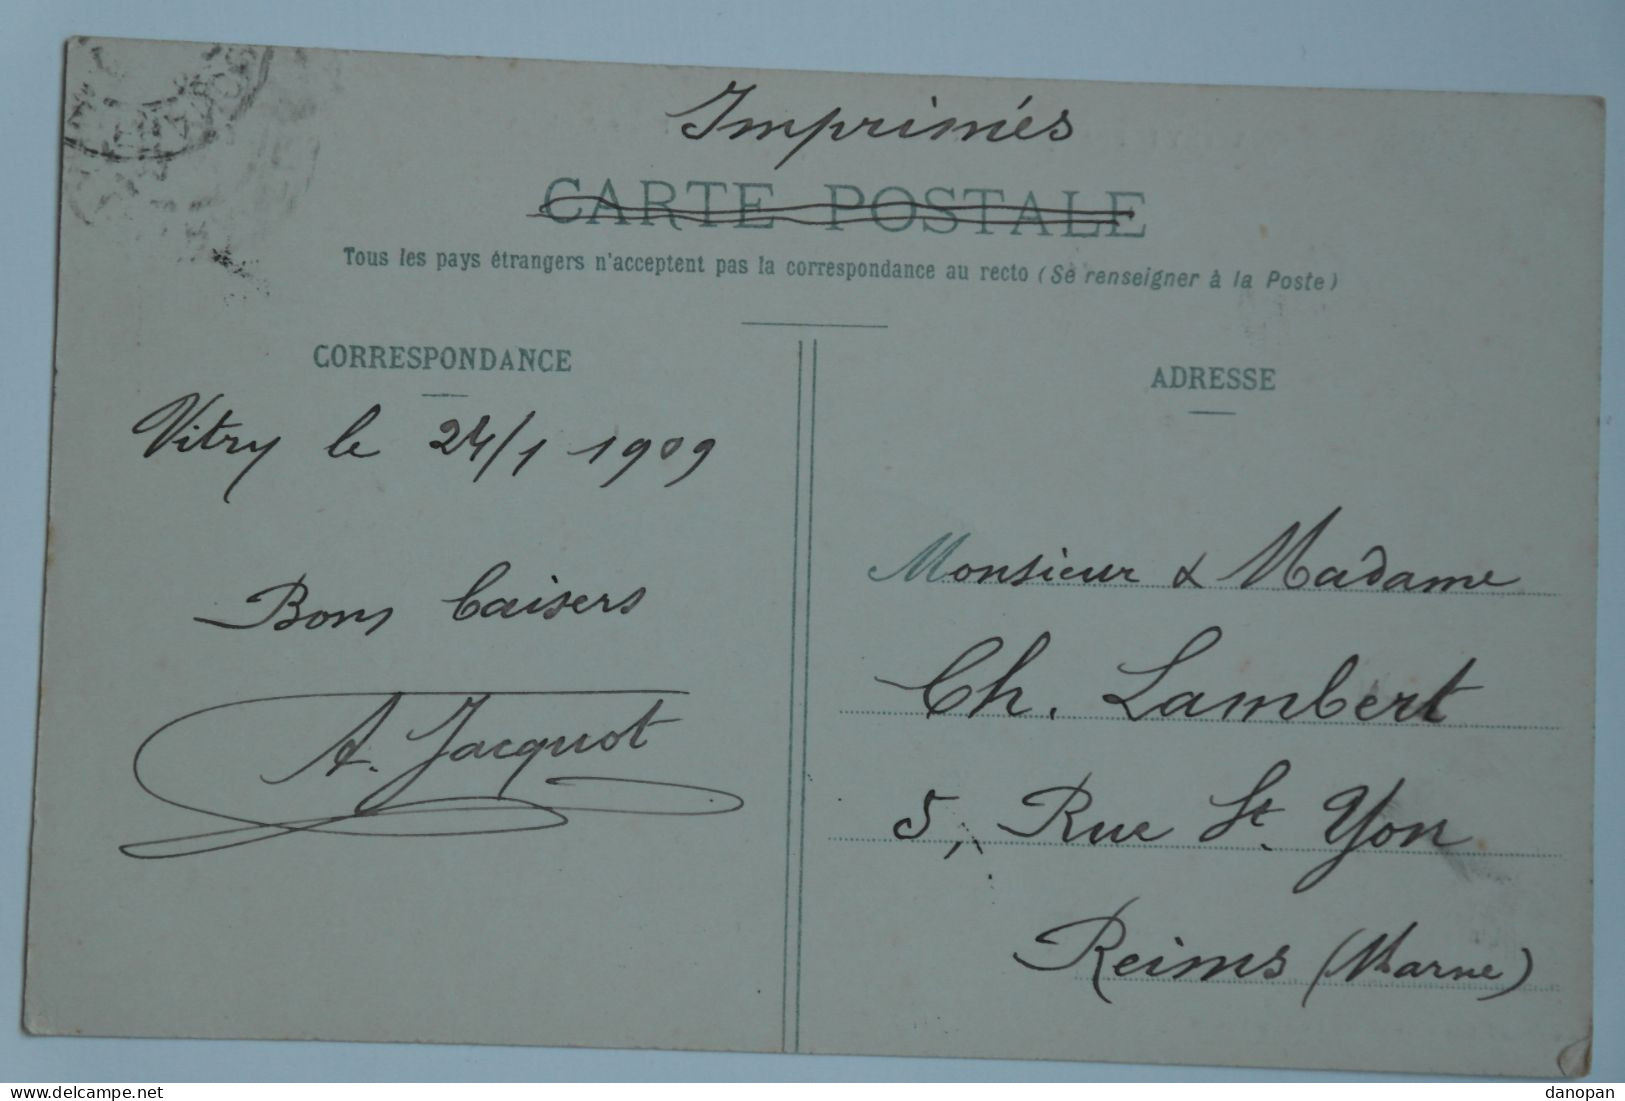 Imprimés
CARTE POSTALE
Tous les pays étrangers n'acceptent pas la correspondance au recto (Se renseigner à la Poste)
CORRESPONDANCE
Vitry le 24/1 1909
Bons baisers
A. Jacquot
ADRESSE
Monsieur & Madame
Ch. Lambert
5, Rue St. Yon
Reims (Marne)
delcampe.net
danopan